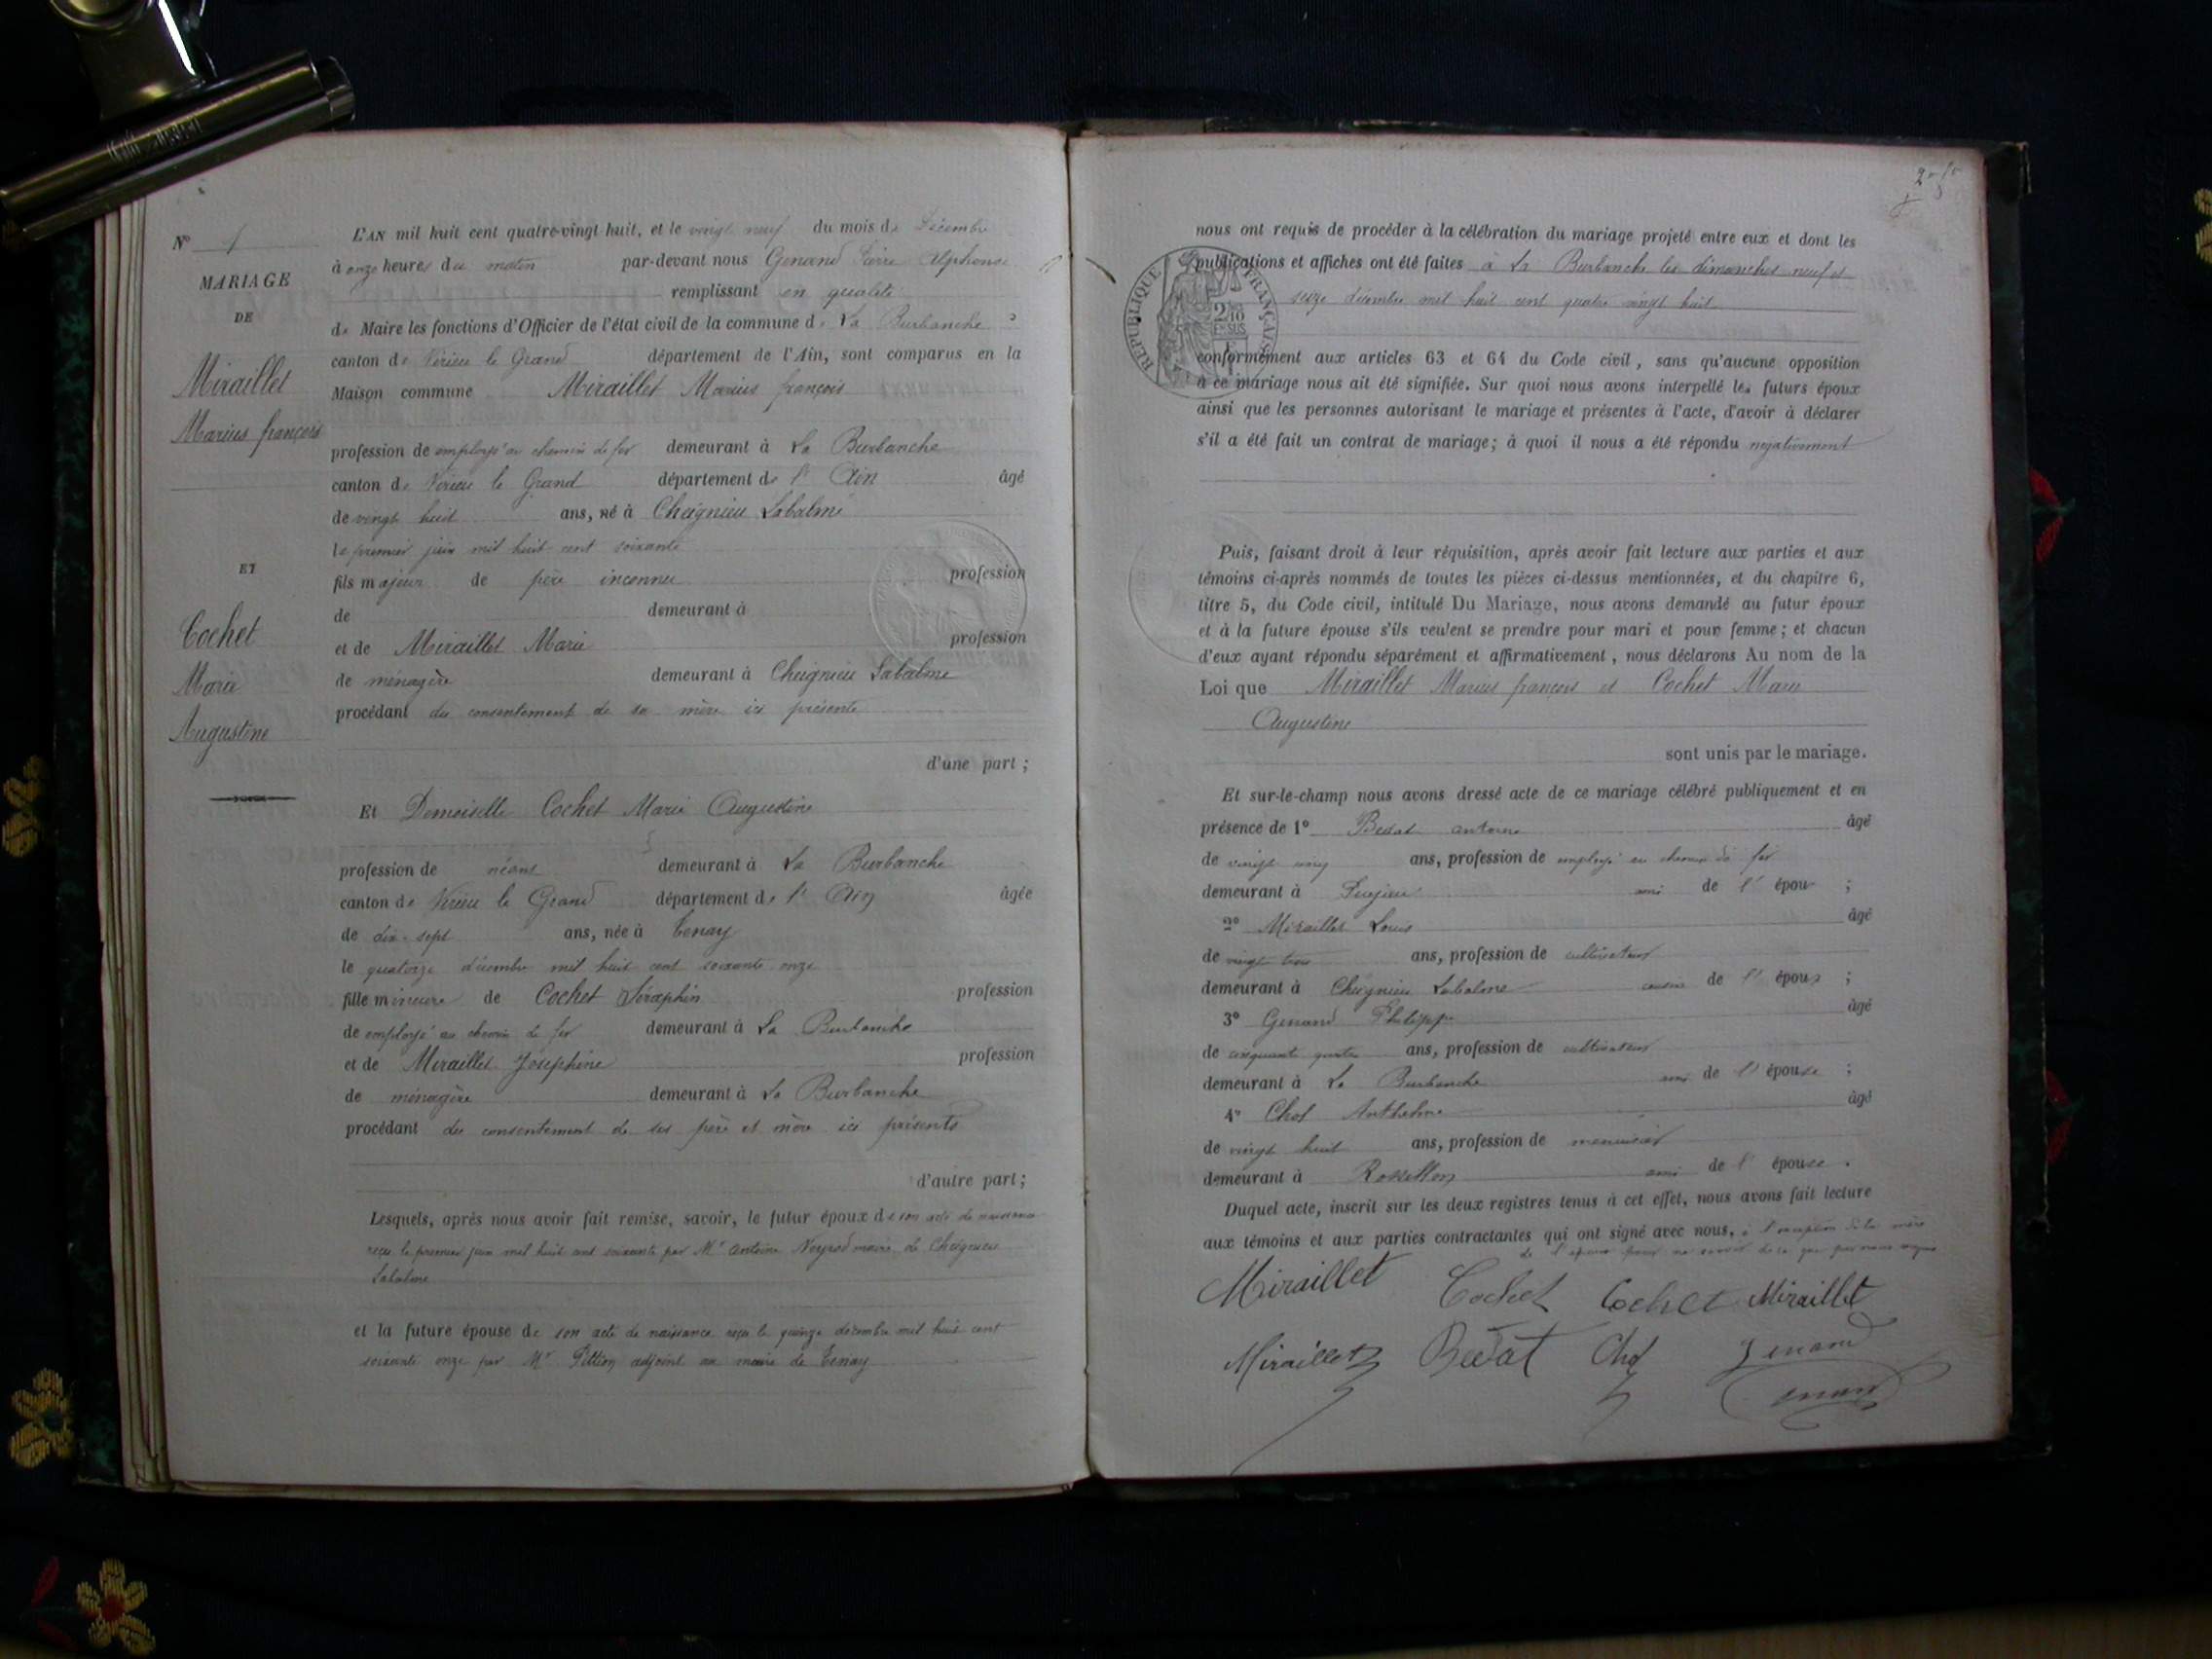 N° 1
MARIAGE
DE
Miraillet
Marius françois
ET
Cochet
Marie
Augustine
L'AN mil huit cent quatre-vingt huit, et le vingt neuf du mois de Décembre
à onze heures du matin par-devant nous Genand Pierre Alphonse
remplissant en qualité
de Maire les fonctions d'Officier de l'état civil de la commune de La Burbanche
canton de Virieu le Grand département de l'Ain, sont comparus en la
Maison commune Miraillet Marius françois
profession de employé au chemin de fer demeurant à La Burbanche
canton de Virieu le Grand département de l' Ain âgé
de vingt huit ans, né à Cheignieu Labalme
le premier juin mil huit cent soixante
fils majeur de père inconnu profession
de demeurant à
et de Miraillet Marie profession
de ménagère demeurant à Cheignieu Labalme
procédant du consentement de sa mère ici présente
d'une part ;
Et Demoiselle Cochet Marie Augustine
profession de néant demeurant à La Burbanche
canton de Virieu le Grand département de l' Ain âgée
de dix-sept ans, née à Tenay
le quatorze décembre mil huit cent soixante onze
fille mineure de Cochet Séraphin profession
de employé au chemin de fer demeurant à La Burbanche
et de Miraillet Joséphine profession
de ménagère demeurant à La Burbanche
procédant du consentement de ses père et mère ici présents
d'autre part ;
Lesquels, après nous avoir fait remise, savoir, le futur époux de son acte de naissance
reçu le premier juin mil huit cent soixante par Mr Antoine maire de Cheignieu
Labalme
et la future épouse de son acte de naissance reçu le quinze décembre mil huit cent
soixante onze par Mr Pittion adjoint au maire de Tenay
nous ont requis de procéder à la célébration du mariage projeté entre eux et dont les
publications et affiches ont été faites à La Burbanche les dimanches neuf et
seize décembre mil huit cent quatre vingt huit
RÉPUBLIQUE FRANÇAISE
2/10
EN SUS
conformément aux articles 63 et 64 du Code civil, sans qu'aucune opposition
à ce mariage nous ait été signifiée. Sur quoi nous avons interpellé les futurs époux
ainsi que les personnes autorisant le mariage et présentes à l'acte, d'avoir à déclarer
s'il a été fait un contrat de mariage; à quoi il nous a été répondu négativement
Puis, faisant droit à leur réquisition, après avoir fait lecture aux parties et aux
témoins ci-après nommés de toutes les pièces ci-dessus mentionnées, et du chapitre 6,
titre 5, du Code civil, intitulé Du Mariage, nous avons demandé au futur époux
et à la future épouse s'ils veulent se prendre pour mari et pour femme; et chacun
d'eux ayant répondu séparément et affirmativement, nous déclarons Au nom de la
Loi que Miraillet Marius françois et Cochet Marie
Augustine
sont unis par le mariage.
Et sur-le-champ nous avons dressé acte de ce mariage célébré publiquement et en
présence de 1° Bedat antoine âgé
de vingt cinq ans, profession de employé au chemin de fer
demeurant à ami de l' époux ;
2° Miraillet Louis âgé
de vingt trois ans, profession de cultivateur
demeurant à Cheignieu Labalme cousin de l' époux ;
3° Genand Philippe âgé
de cinquante quatre ans, profession de cultivateur
demeurant à La Burbanche ami de l' épouse ;
4° Chol Anthelme âgé
de vingt huit ans, profession de menuisier
demeurant à Rossillon ami de l' épouse.
Duquel acte, inscrit sur les deux registres tenus à cet effet, nous avons fait lecture
aux témoins et aux parties contractantes qui ont signé avec nous, à l'exception de la mère
de l'époux pour ne savoir de ce que par nous requis
Miraillet Cochet Cochet Miraillet
Miraillet Bedat Chol Genand
Genand